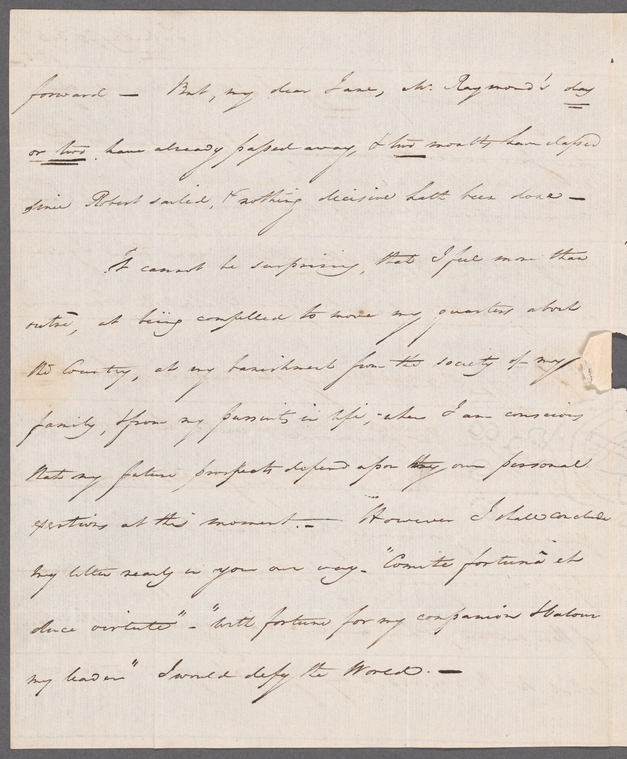 forward — But, my dear Jane, Mr. Raymond's day
or two have already passed away, & two months have elapsed
since Robert sailed, & nothing decisive hath been done —
It cannot be surprising, that I feel more than
outré, at being compelled to move my quarters about
the Country, at my banishment from the society of my
family, & from my pursuits in life, when I am conscious
that my future prospects depend upon my own personal
exertions at this moment. — However I shall conclude
my letter nearly in your own way — "Comite fortunâ et
duce virtute" — "with fortune for my companion & Valour
my leader" I would defy the World. —